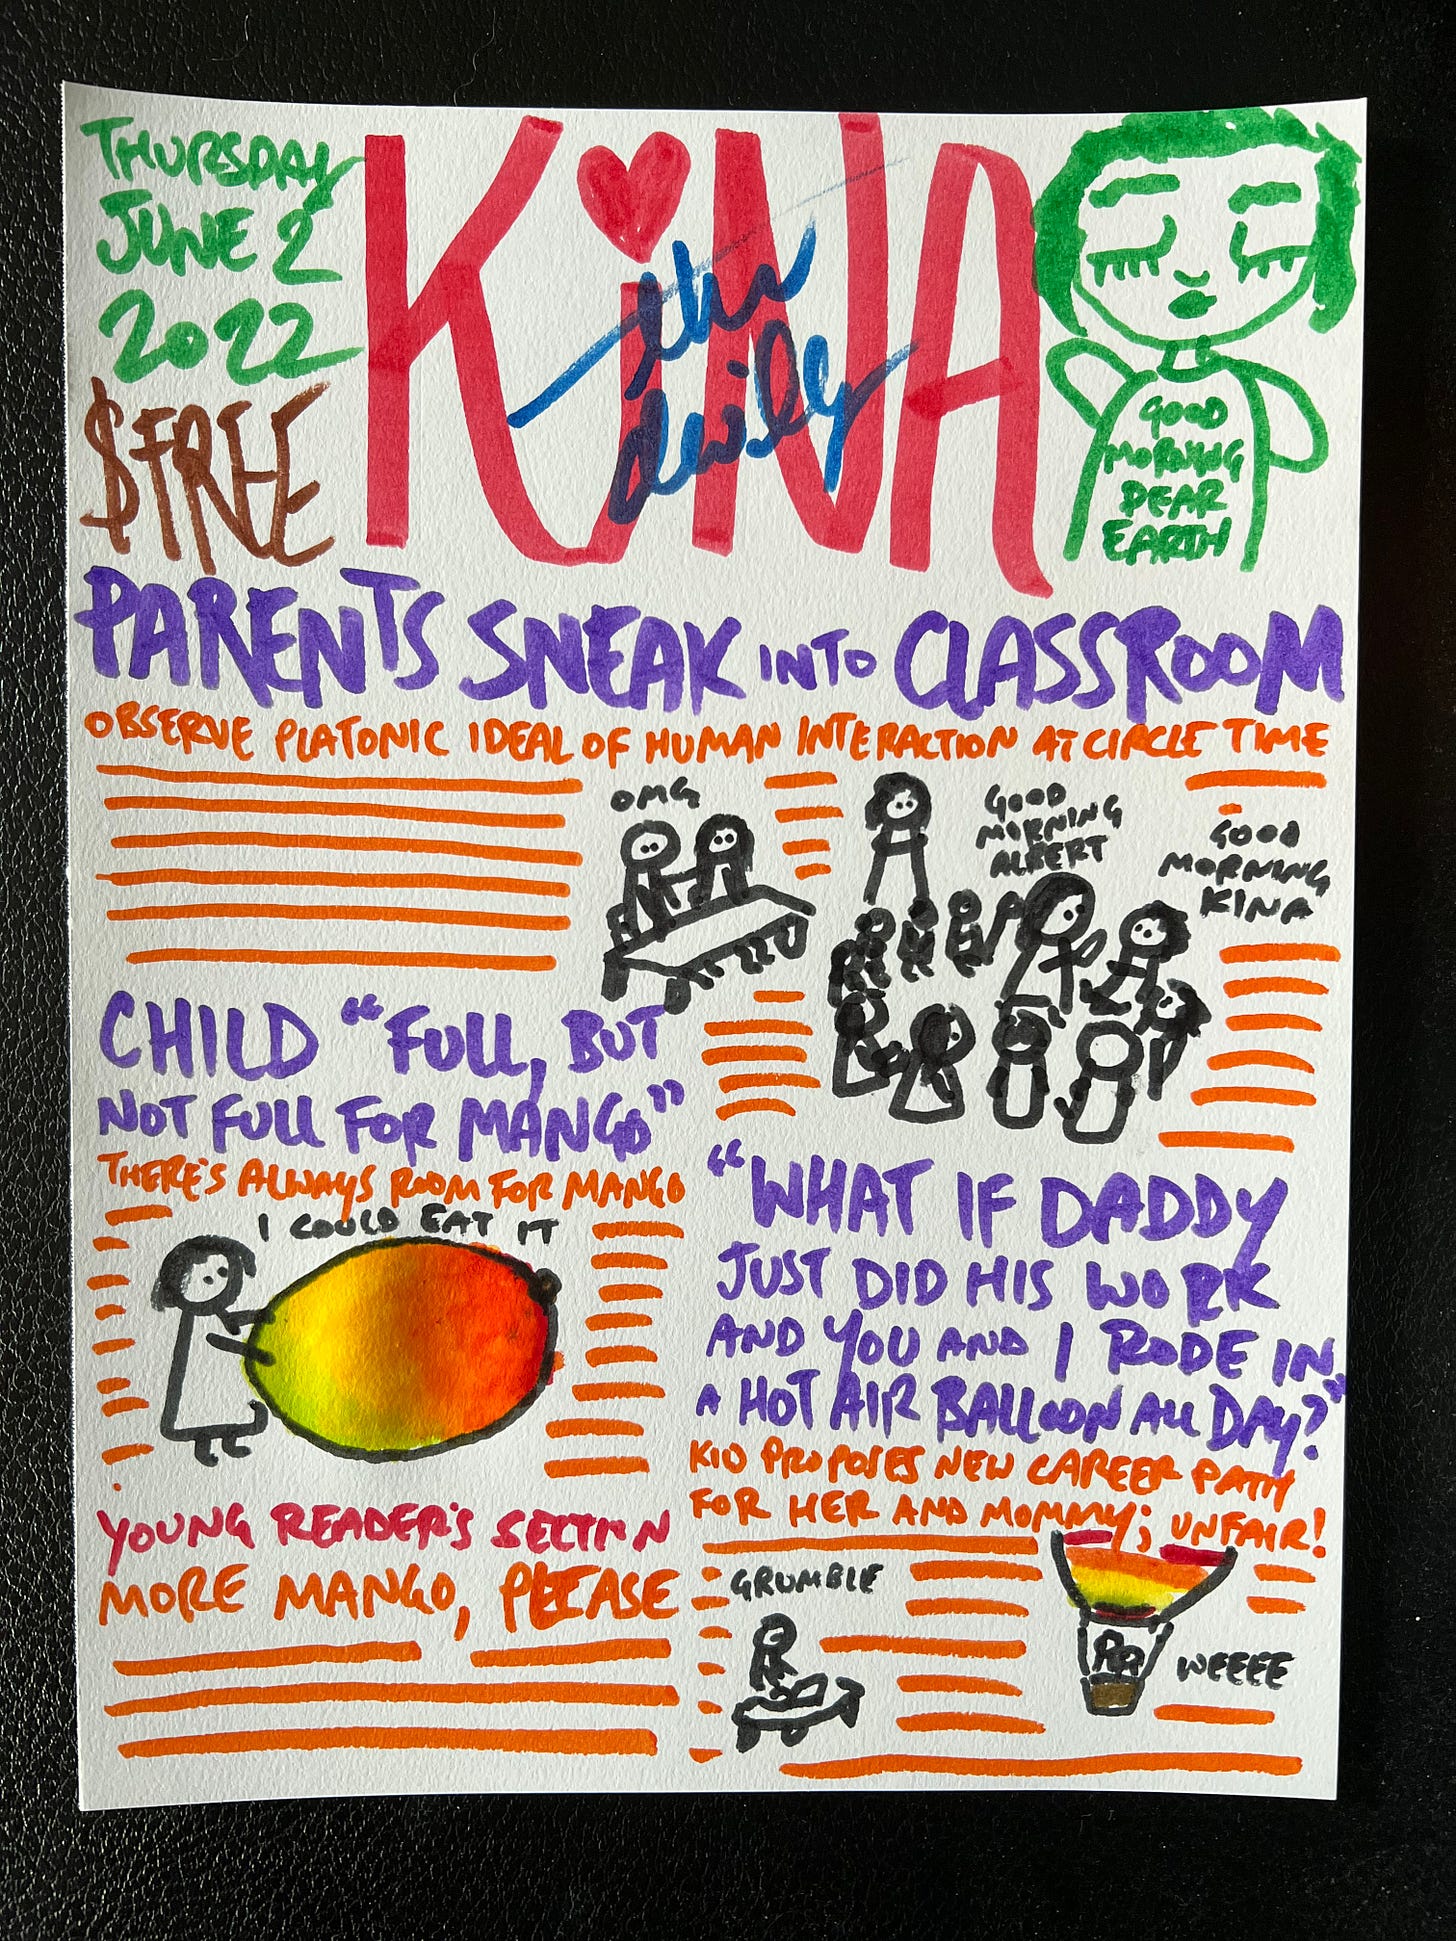 THURSDAY
JUNE 2
2022
$FREE
KiNA
the
daily
GOOD
MORNING
DEAR
EARTH
PARENTS SNEAK INTO CLASSROOM
OBSERVE PLATONIC IDEAL OF HUMAN INTERACTION AT CIRCLE TIME
OMG
GOOD
MORNING
ALBERT
GOOD
MORNING
KINA
CHILD "FULL, BUT
NOT FULL FOR MANGO"
THERE'S ALWAYS ROOM FOR MANGO
I COULD EAT IT
YOUNG READER'S SECTION
MORE MANGO, PLEASE
"WHAT IF DADDY
JUST DID HIS WORK
AND YOU AND I RODE IN
A HOT AIR BALLOON ALL DAY?"
KID PROPOSES NEW CAREER PATH
FOR HER AND MOMMY; UNFAIR!
GRUMBLE
WEEEE